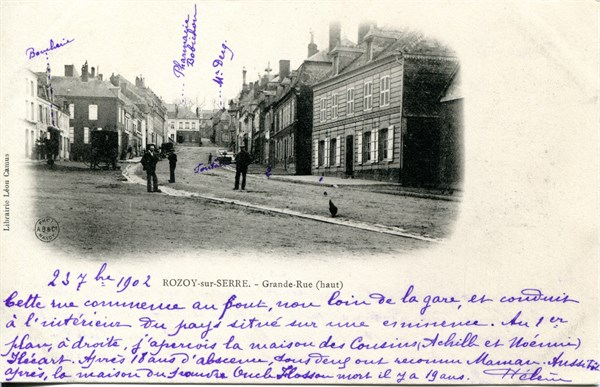 Boucherie
Pharmacie
Bobichon
Mr Derg.
Librairie Léon Camus
23 7bre 1902
ROZOY-sur-SERRE. - Grande-Rue (haut)
Cette rue commence au pont, non loin de la gare, et conduit
à l'intérieur du pays situé sur une eminence. Au 1er
plan, à droite, j'aperçois la maison des Cousins, (Achille et Noémie)
Hécart. Après 18 ans d'absence, tous deux ont reconnu Maman. Aussitôt
après, la maison du Oncle mort il y a 19 ans. Hélène